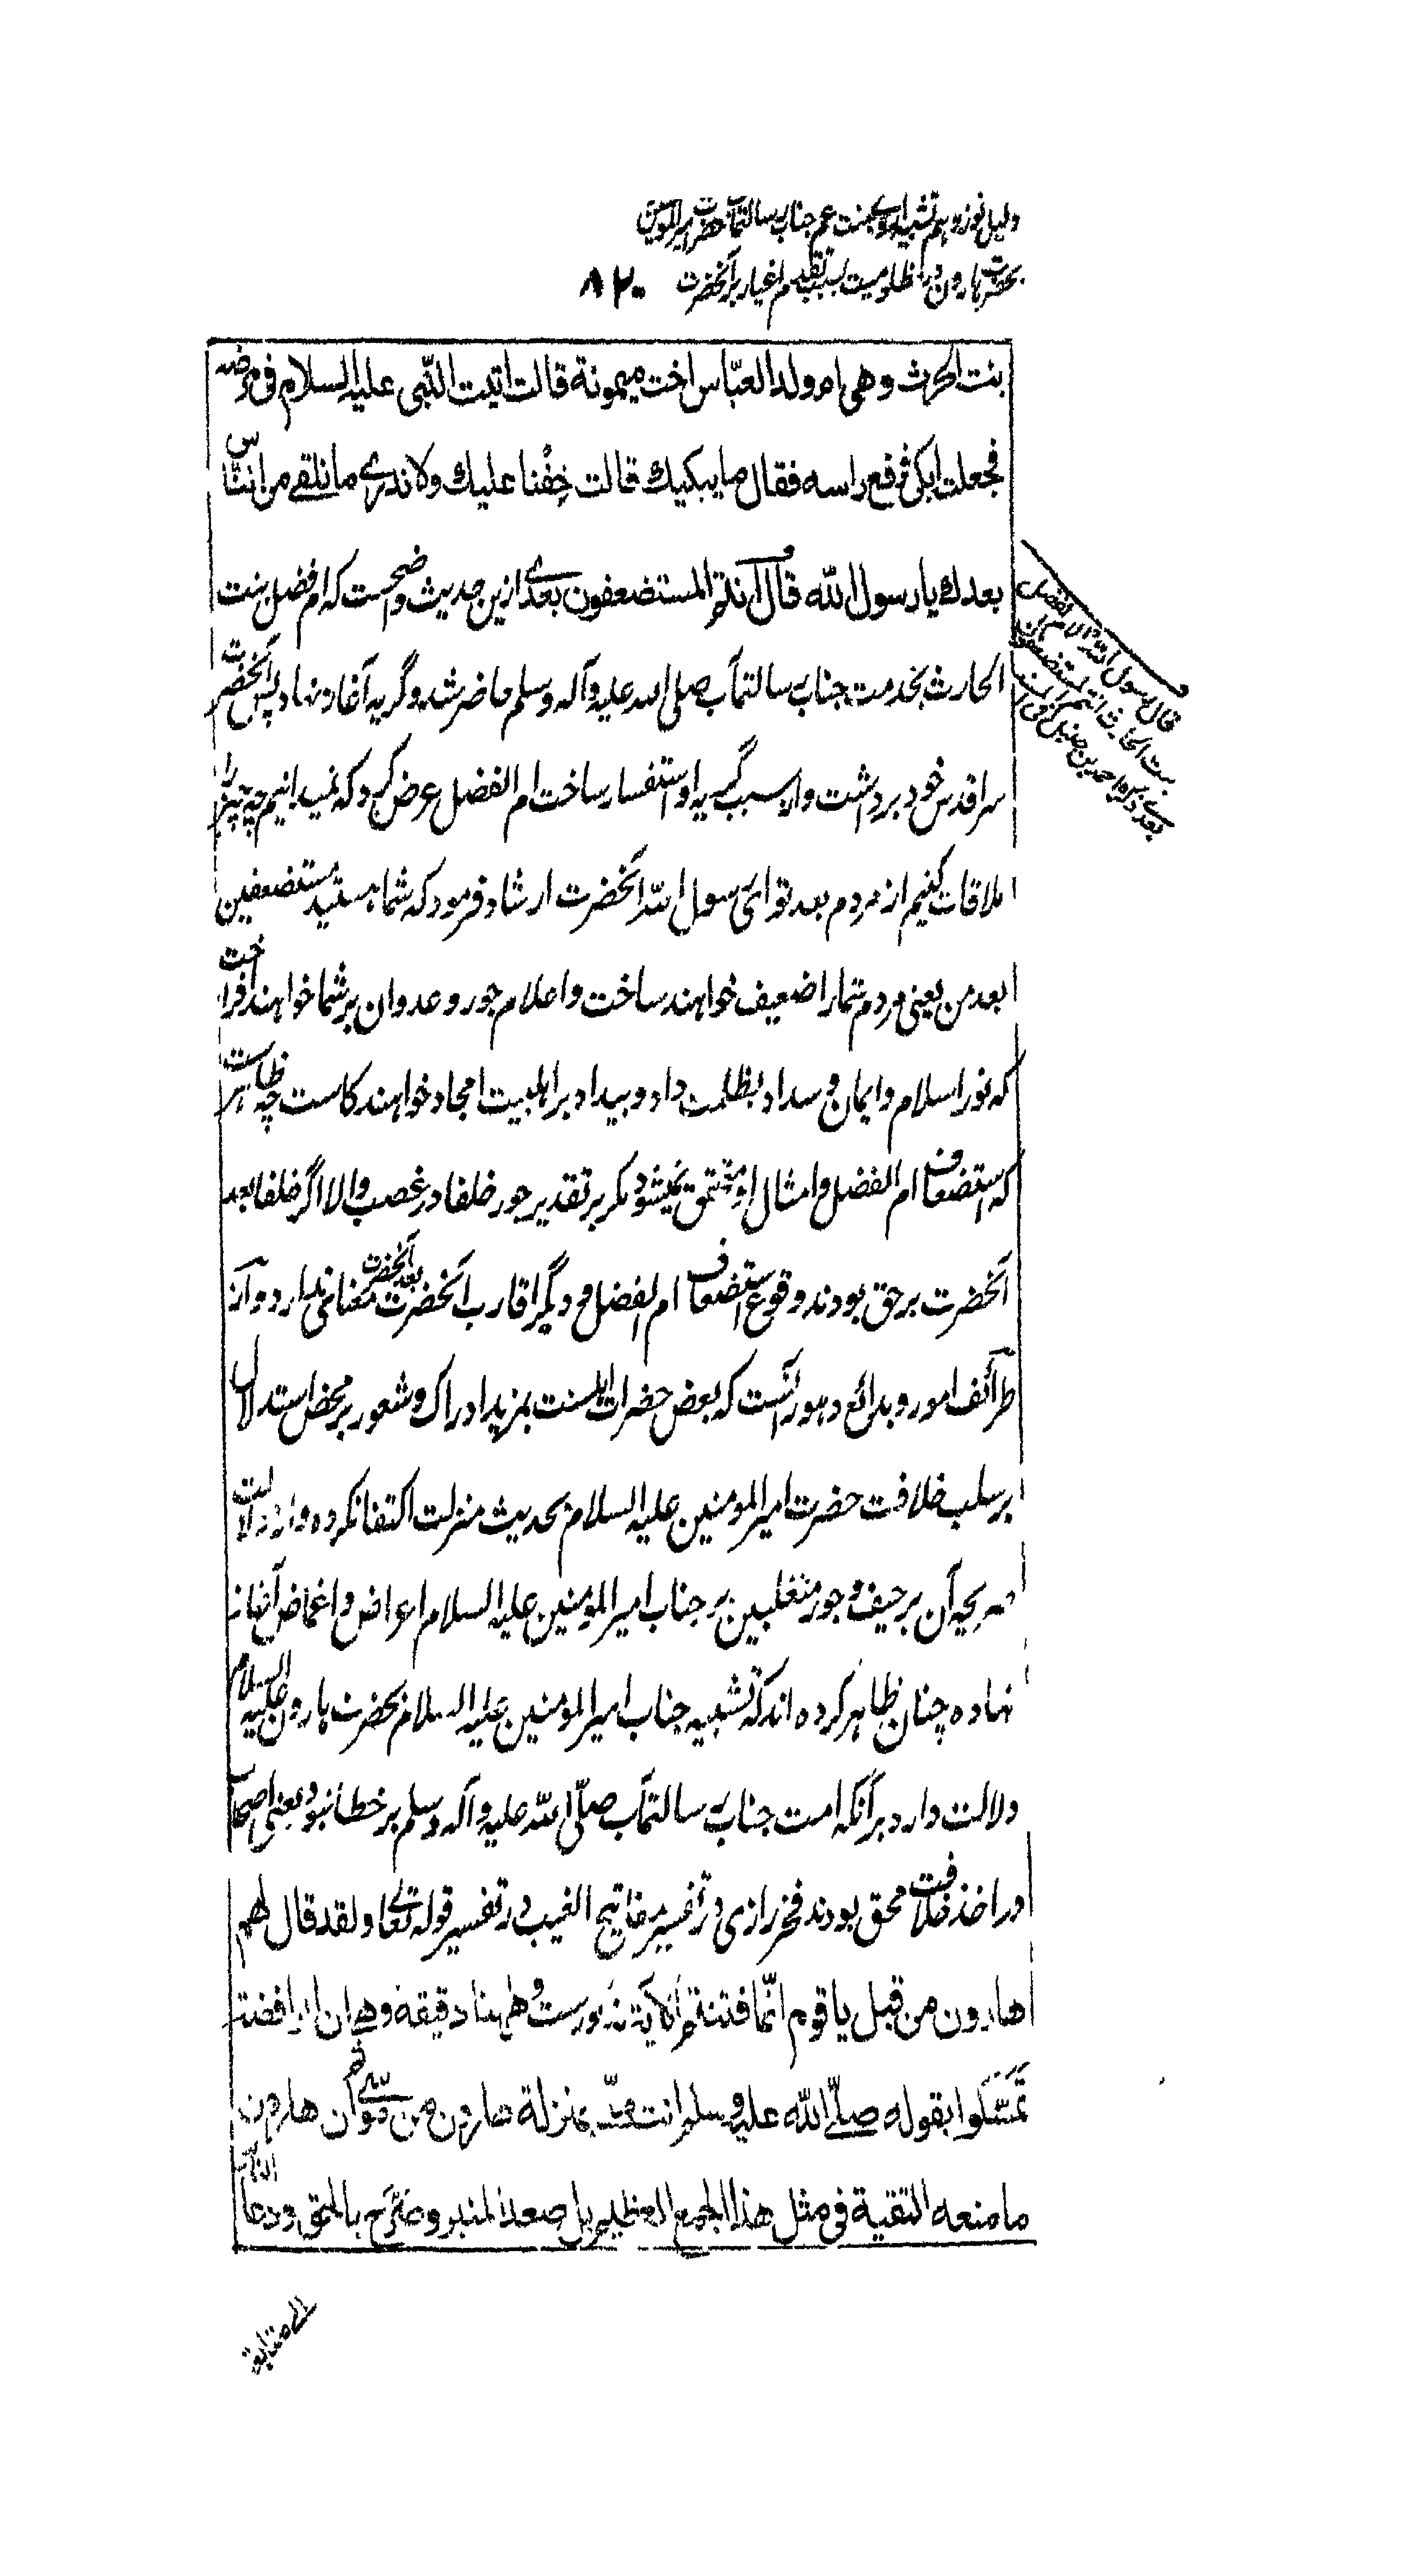 دلیل نوزدهم تشبیه نبوی بنت عم جناب رسالتمآب حضرت امیرالمومنین
بحضرت هارون در مظلومیت بسبب تقدم اغیار بر آنحضرت ۸۲۰
بنت الحرث وهی ام ولد العباس اخت میمونة قالت اتیت النّبی علیه السلام فی مرضه
فجعلت ابکی فرفع راسه فقال ما یبکیك قالت خِفْنا علیك ولا ندری ما نلقی من الناس
بعدك یا رسول الله قال انتم المستضعفون بعدی ازین حدیث واضحست که ام فضل بنت
الحارث بخدمت جناب رسالتمآب صلی الله علیه وآله وسلم حاضر شد وگریه آغاز نهاد پس آنحضرت
سر اقدس خود برداشت واز سبب گریه او استفسار ساخت ام الفضل عرض کرد که نمیدانیم چه چیز را
ملاقات کنیم از مردم بعد تو ای رسول الله آنحضرت ارشاد فرمود که شما هستید مستضعفین
بعد من یعنی مردم شما را ضعیف خواهند ساخت واعلام جور وعدوان بر شما خواهند افراخت
که نور اسلام وایمان وسداد بظلمت داد وبیداد بر اهلبیت امجاد خواهند کاست چه ظاهرست
که استضعاف ام الفضل وامثال او متحقق نمیشود مگر بر تقدیر جور خلفا در غصب والا اگر خلفا بعد
آنحضرت بر حق بودند وقوع استضعاف ام الفضل ودیگر اقارب آنحضرت بعد آنحضرت معنائی ندارد واز
طرائف امور وبدائع دهور آنست که بعض حضرات اهلسنت بمزید ادراك وشعور بر محض استدلال
بر سلب خلافت حضرت امیر المومنین علیه السلام بحدیث منزلت اکتفا نکرده واز دلالت
صریحه آن بر حیف وجور متغلبین بر جناب امیر المومنین علیه السلام اعراض واغماض آغاز
نهاده چنان ظاهر کرده اند که تشبیه جناب امیر المومنین علیه السلام بحضرت هارون علیه السلام
دلالت دارد بر آنکه امت جناب رسالتمآب صلّی الله علیه وآله وسلم بر خطا نبود یعنی اصحاب
در اخذ خلافت محق بودند فخر رازی در تفسیر مفاتیح الغیب در تفسیر قوله تعالی ولقد قال لهم
هارون من قبل یا قوم انّما فتنتم به الآیة گفته وههنا دقیقة وهی ان الرافضة
تمسّکوا بقوله صلّی الله علیه وسلم انت منّی بمنزلة هارون من موسی ثم ان هارون
ما منعه التقیة فی مثل هذا الجمع العظیم بل صعد المنبر وصرّح بالحق ودعا الناس
الی متابعة
قال رسول الله لام الفضل
بنت الحارث انتم المستضعفون
بعدی